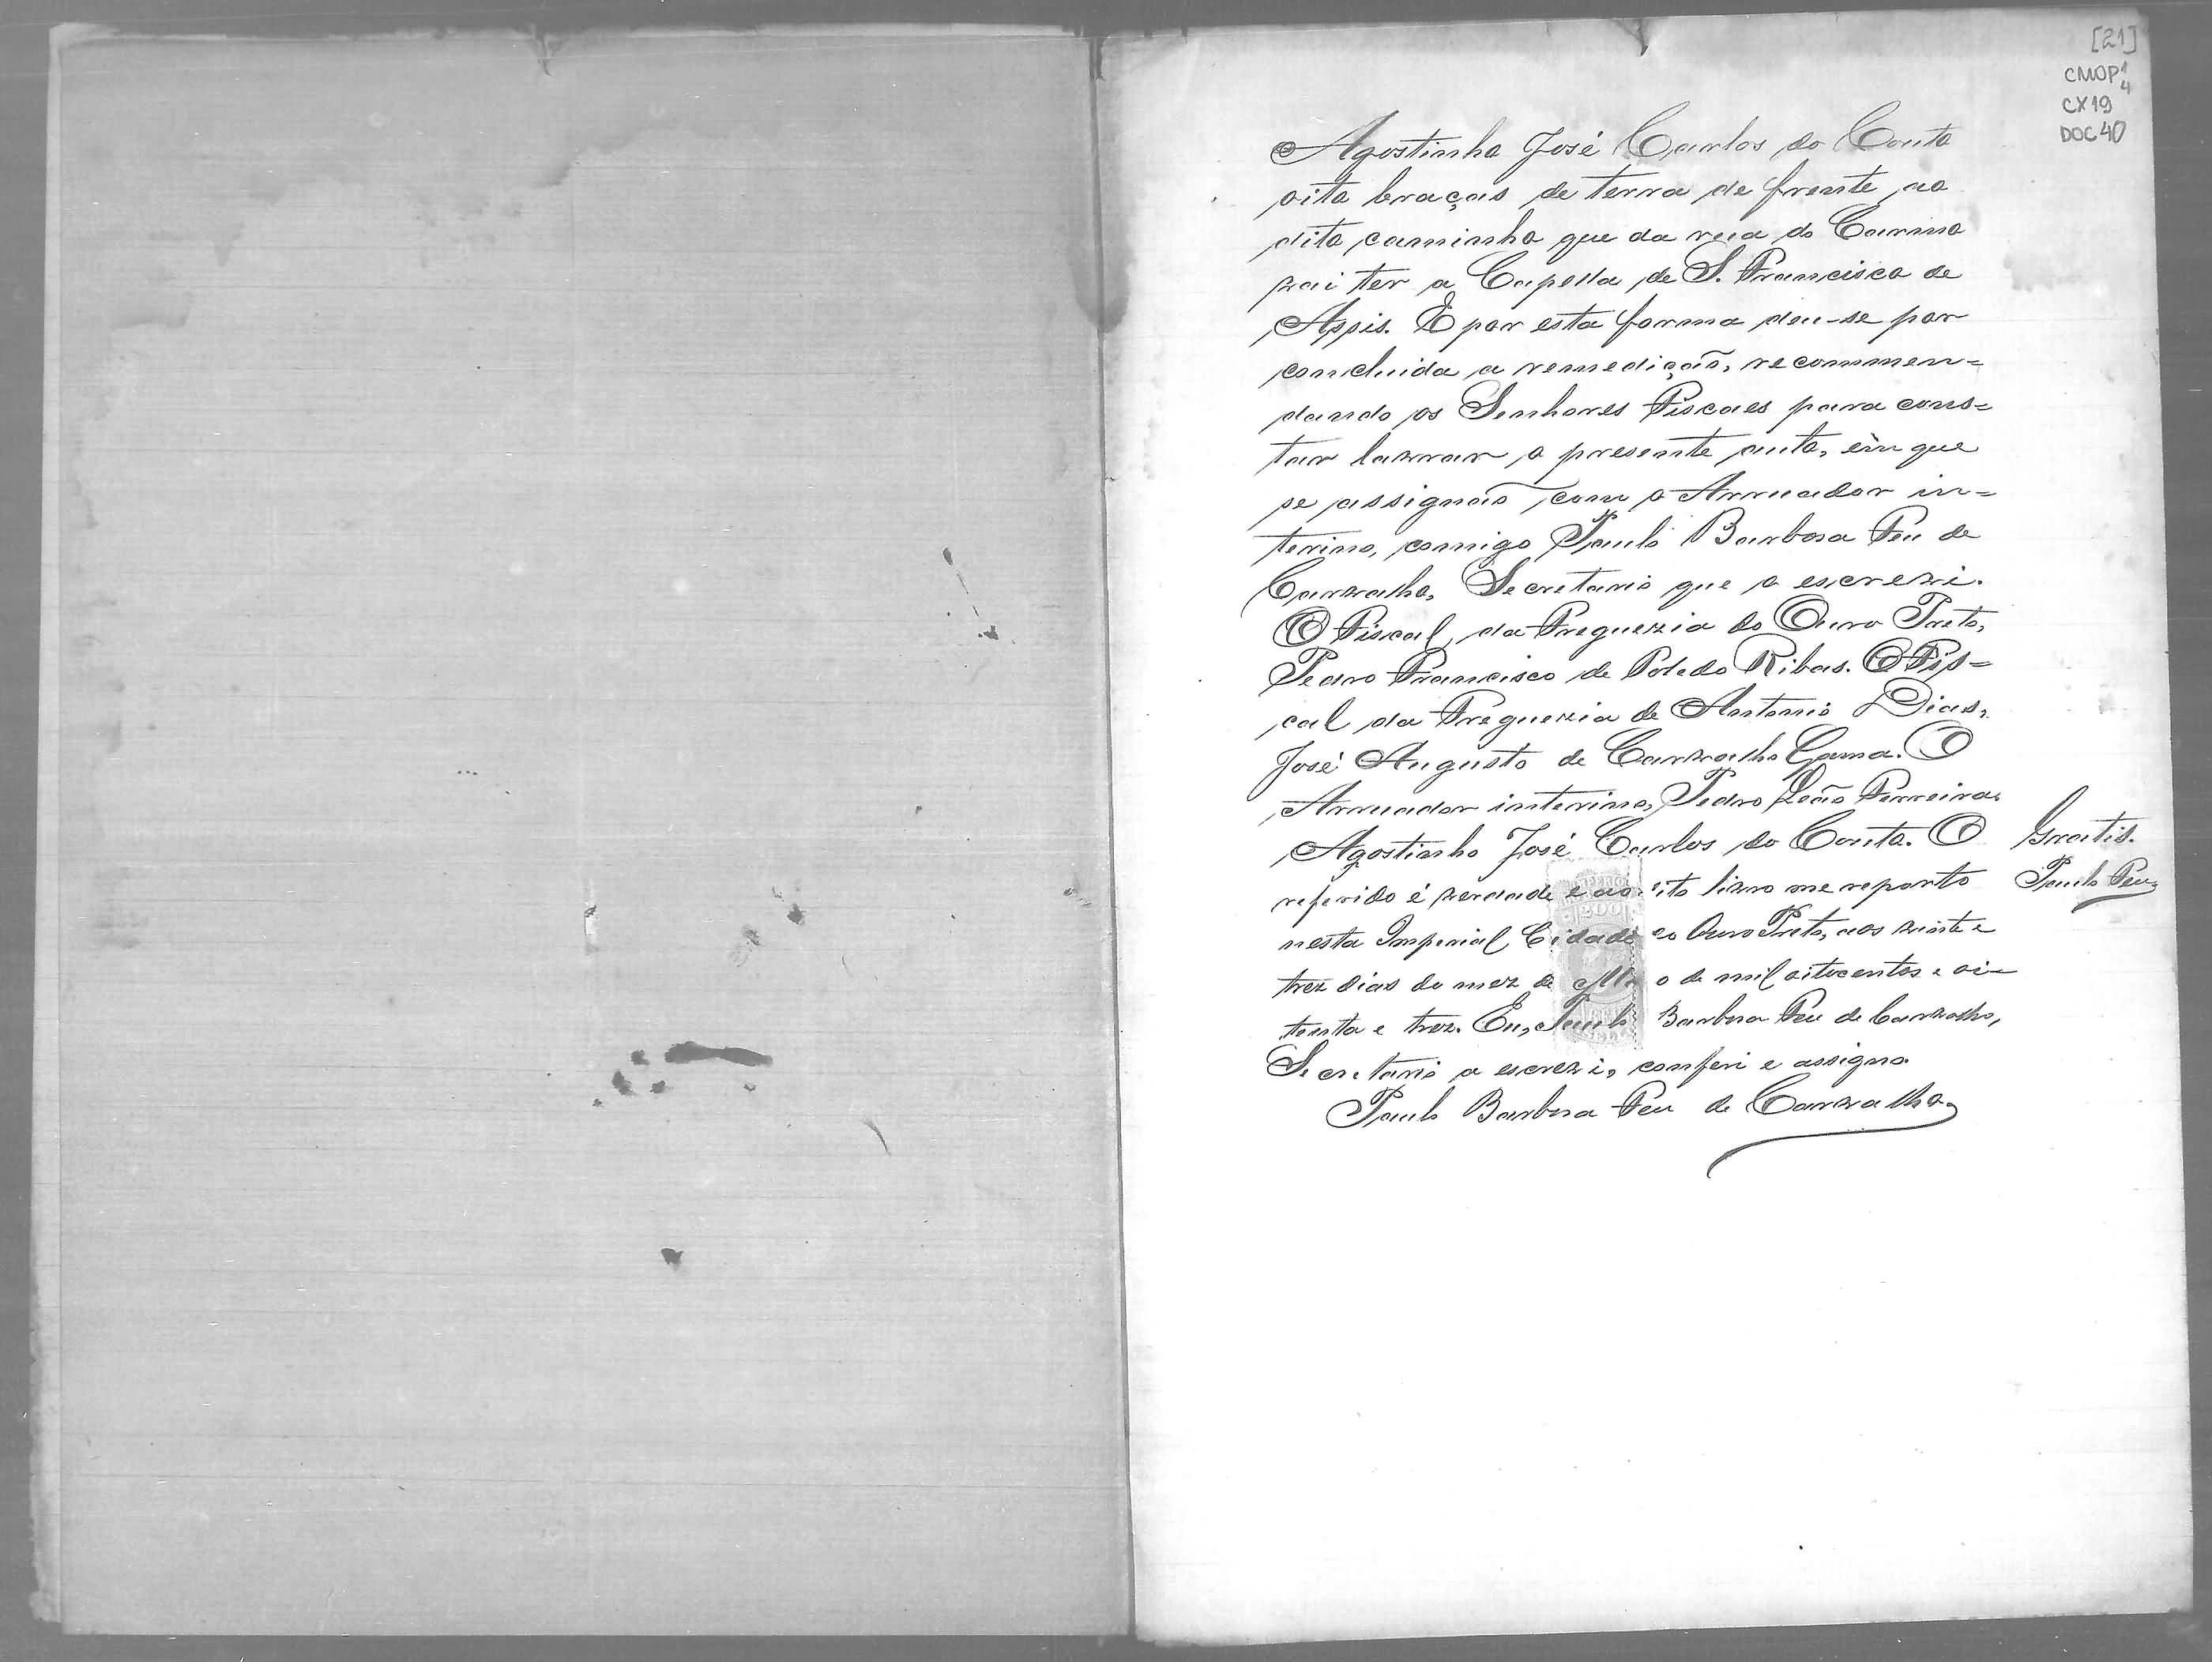 [21]
CMOP 1/4
CX19
DOC 40
Agostinho José Carlos do Couto
oito braças de terra de frente ao
dito caminho que da rua do Carmo
vai ter a Capella de S. Francisco de
Assis. E por esta forma deu-se por
concluida a remedição, recommen=
dando os Senhores Fiscaes para cons=
tar lavrar o presente auto, em que
se assignão com o Arruador in=
terino, comigo Paulo Barbosa Feu de
Carvalho, Secretario que o escrevi.
O Fiscal, da Freguezia do Ouro Preto,
Pedro Francisco de Toledo Ribas. O Fis=
cal da Freguezia de Antonio Dias,
José Augusto de Carvalho Gama. O
Arruador interino, Pedro Leão Ferreira.
Agostinho José Carlos do Couto. O
referido é verdade e ao dito livro me reporto
nesta Imperial Cidade do Ouro Preto, aos vinte e
trez dias do mez de o de mil oitocentos e oi=
tenta e trez. Eu, Paulo Barbosa Feu de Carvalho,
Secretario o escrevi, conferi e assigno.
Paulo Barbosa Feu de Carvalho
Gratis.
Paulo Feu
200